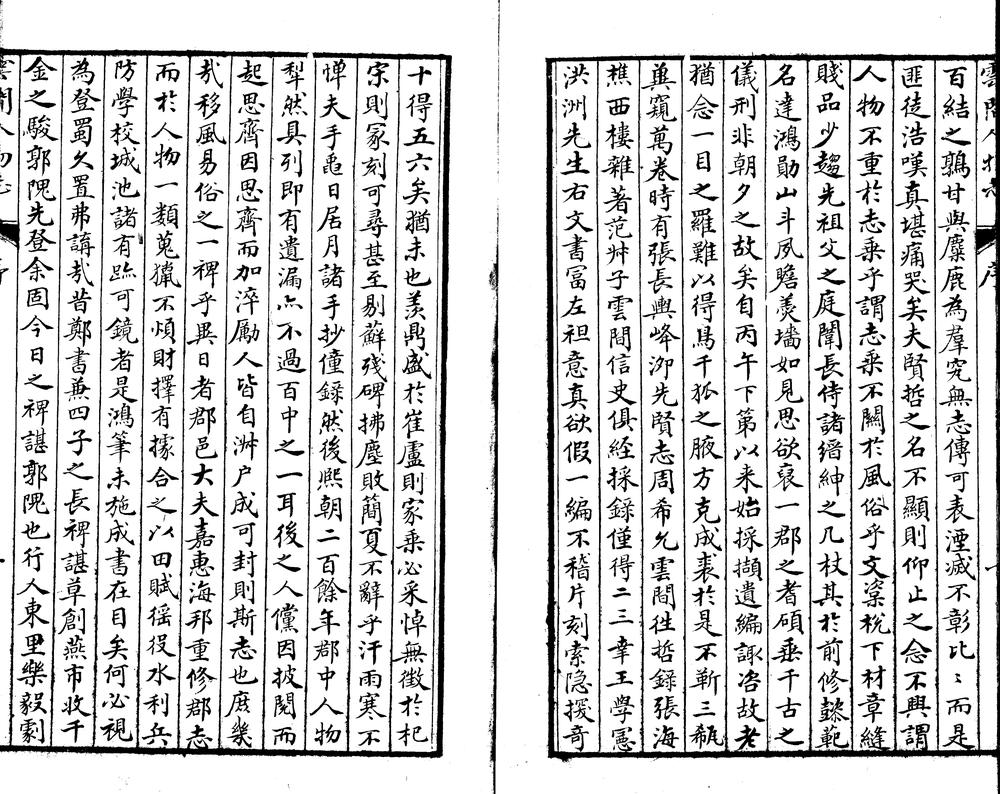 雲間人物志 序
百結之鶉甘與麋鹿為羣究無志傳可表湮滅不彰比〻而是
匪徒浩嘆真堪痛哭矣夫賢哲之名不顯則仰止之念不興謂
人物不重於志乘乎謂志乘不關於風俗乎文棠梲下材章縫
賤品少趨先祖父之庭闈長侍諸縉紳之几杖其於前修懿範
名達鴻勛山斗夙瞻羮墻如見思欲裒一郡之耆碩垂千古之
儀刑非朝夕之故矣自丙午下第以来始採擷遺編諏咨故老
猶念一目之羅難以得鳥千狐之腋方克成裘於是不靳三瓻
奠窺萬卷時有張長輿峰泖先賢志周希允雲間徃哲錄張海
樵西樓雜著范牀子雲間信史俱経採錄僅得二三幸王學憲
洪洲先生右文書冨左袒意真欲假一編不稽片刻索隐援奇
十得五六矣猶未也羨鼎盛於崔盧則家乗必采悼無徴於杞
宋則冢刻可尋甚至剔蘚殘碑拂塵敗簡夏不辭乎汗雨寒不
憚夫手龜日居月諸手抄僮録然後熙朝二百餘年郡中人物
犁然具列即有遺漏亦不過百中之一耳後之人儻因披閱而
起思齊因思齊而加淬勵人皆自淑户成可封則斯志也庶幾
㢤移風易俗之一裨乎異日者郡邑大夫嘉惠海邦重修郡志
而於人物一類蒐獵不煩財擇有據合之以田賦徭役水利兵
防學校城池諸有跡可鏡者是鴻筆未施成書在目矣何必視
為登蜀久置弗講㢤昔鄭書兼四子之長裨諶草創燕市收千
金之駿郭隗先登余固今日之裨諶郭隗也行人東里樂毅劇
雲間人物志 序